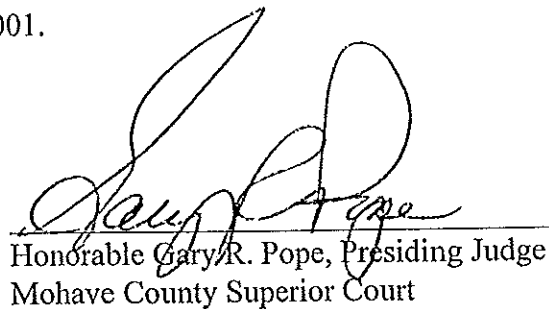 001.
Gary R Pope
Honorable Gary R. Pope, Presiding Judge
Mohave County Superior Court